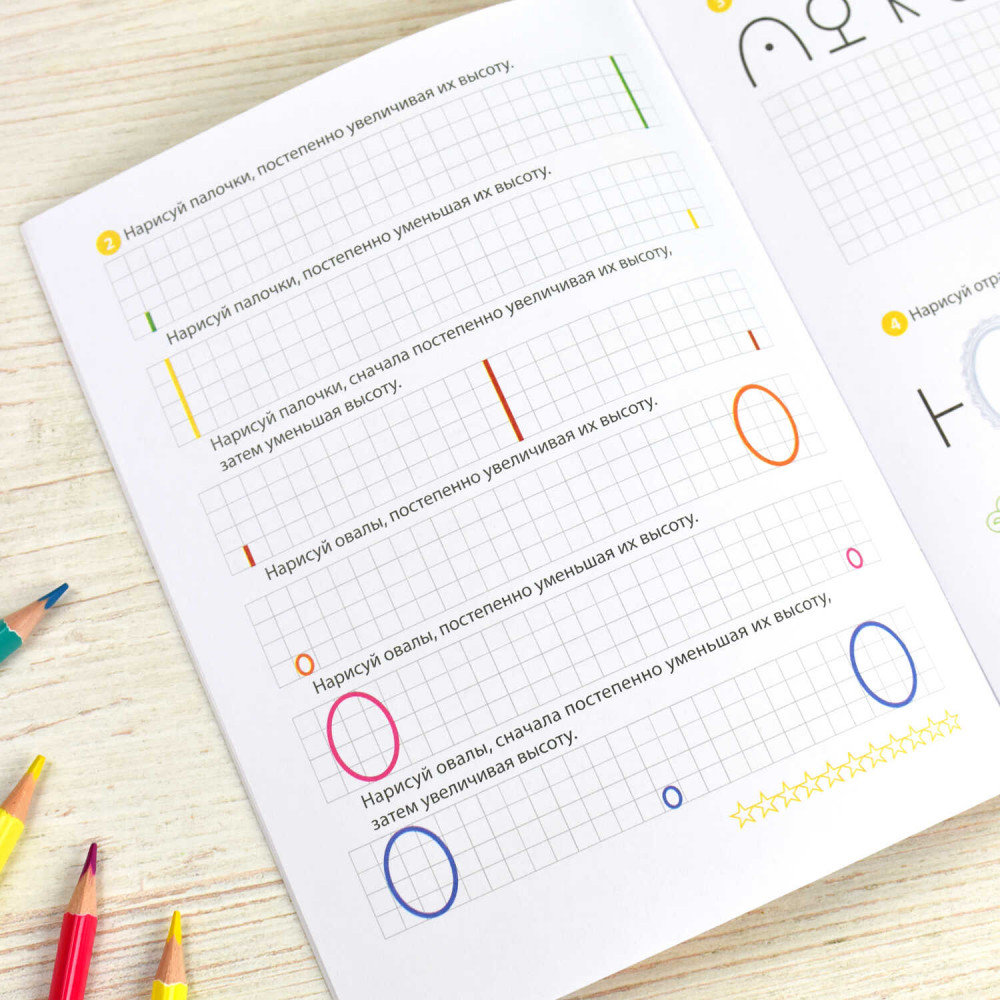 2 Нарисуй палочки, постепенно увеличивая их высоту.
Нарисуй палочки, постепенно уменьшая их высоту.
Нарисуй палочки, сначала постепенно увеличивая их высоту,
затем уменьшая высоту.
Нарисуй овалы, постепенно увеличивая их высоту.
Нарисуй овалы, постепенно уменьшая их высоту.
Нарисуй овалы, сначала постепенно уменьшая их высоту,
затем увеличивая высоту.
3
4 Нарисуй отра